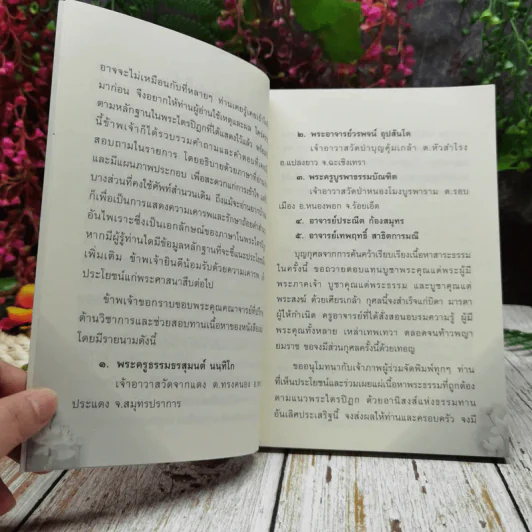 อาจจะไม่เหมือนกับที่หลายๆ ท่านเคยรู้เคยเข้าใจ
มาก่อน จึงอยากให้ท่านผู้อ่านใช้เหตุและผล
ตามหลักฐานในพระไตรปิฎกที่ได้แสดงไว้แล้ว
นี้ข้าพเจ้าก็ได้รวบรวมคำถามและคำตอบที่
สอบถามในรายการ โดยอธิบายด้วยภาษาที่
และมีแผนภาพประกอบ เพื่อสะดวกแก่การ
บางส่วนที่คงใช้ศัพท์สำนวนเดิม ถึงแม้จะอ่าน
ก็เพื่อเป็นการแสดงความเคารพและรักษา
อันไพเราะซึ่งเป็นเอกลักษณ์ของภาษาในพระไตรปิฎก
หากมีผู้รู้ท่านใดมีข้อมูลหลักฐานที่จะชี้แนะ
เพิ่มเติม ข้าพเจ้ายินดีน้อมรับด้วยความเคารพ
ประโยชน์แก่พระศาสนาสืบต่อไป
ข้าพเจ้าขอกราบขอบพระคุณคณาจารย์ที่
ด้านวิชาการและช่วยสอบทานเนื้อหาของหนังสือ
โดยมีรายนามดังนี้
๑. พระครูธรรมธรสุมนต์ นนฺทิโก
เจ้าอาวาสวัดจากแดง ต.ทรงคนอง อ.พระ
ประแดง จ.สมุทรปราการ
๒. พระอาจารย์วรพจน์ อุปสันโต
เจ้าอาวาสวัดป่าบุญคุ้มเกล้า ต.หัวสำโรง
อ.แปลงยาว จ.ฉะเชิงเทรา
๓. พระครูบูรพาธรรมบัณฑิต
เจ้าอาวาสวัดป่าหนองโมงบูรพาราม ต.รอบ
เมือง อ.หนองพอก จ.ร้อยเอ็ด
๔. อาจารย์ประณีต ก้องสมุทร
๕. อาจารย์เทพฤทธิ์ สาธิตการมณี
บุญกุศลจากการค้นคว้าเรียบเรียงเนื้อหาสาระธรรม
ในครั้งนี้ ขอถวายตอบแทนบูชาพระคุณแด่พระผู้มี
พระภาคเจ้า บูชาคุณแด่พระธรรม และบูชาคุณแด่
พระสงฆ์ ด้วยเศียรเกล้า กุศลนี้จงสำเร็จแก่บิดา มารดา
ผู้ให้กำเนิด ครูอาจารย์ที่ได้สั่งสอนอบรมความรู้ ผู้มี
พระคุณทั้งหลาย เหล่าเทพเทวา ตลอดจนท้าวพญา
ยมราช ขอจงมีส่วนกุศลครั้งนี้ด้วยเทอญ
ขออนุโมทนากับเจ้าภาพผู้ร่วมจัดพิมพ์ทุกๆ ท่าน
ที่เห็นประโยชน์และร่วมเผยแผ่เนื้อหาพระธรรมที่ถูกต้อง
ตามแนวพระไตรปิฎก ด้วยอานิสงส์แห่งธรรมทาน
อันเลิศประเสริฐนี้ จงส่งผลให้ท่านและครอบครัว จงมี